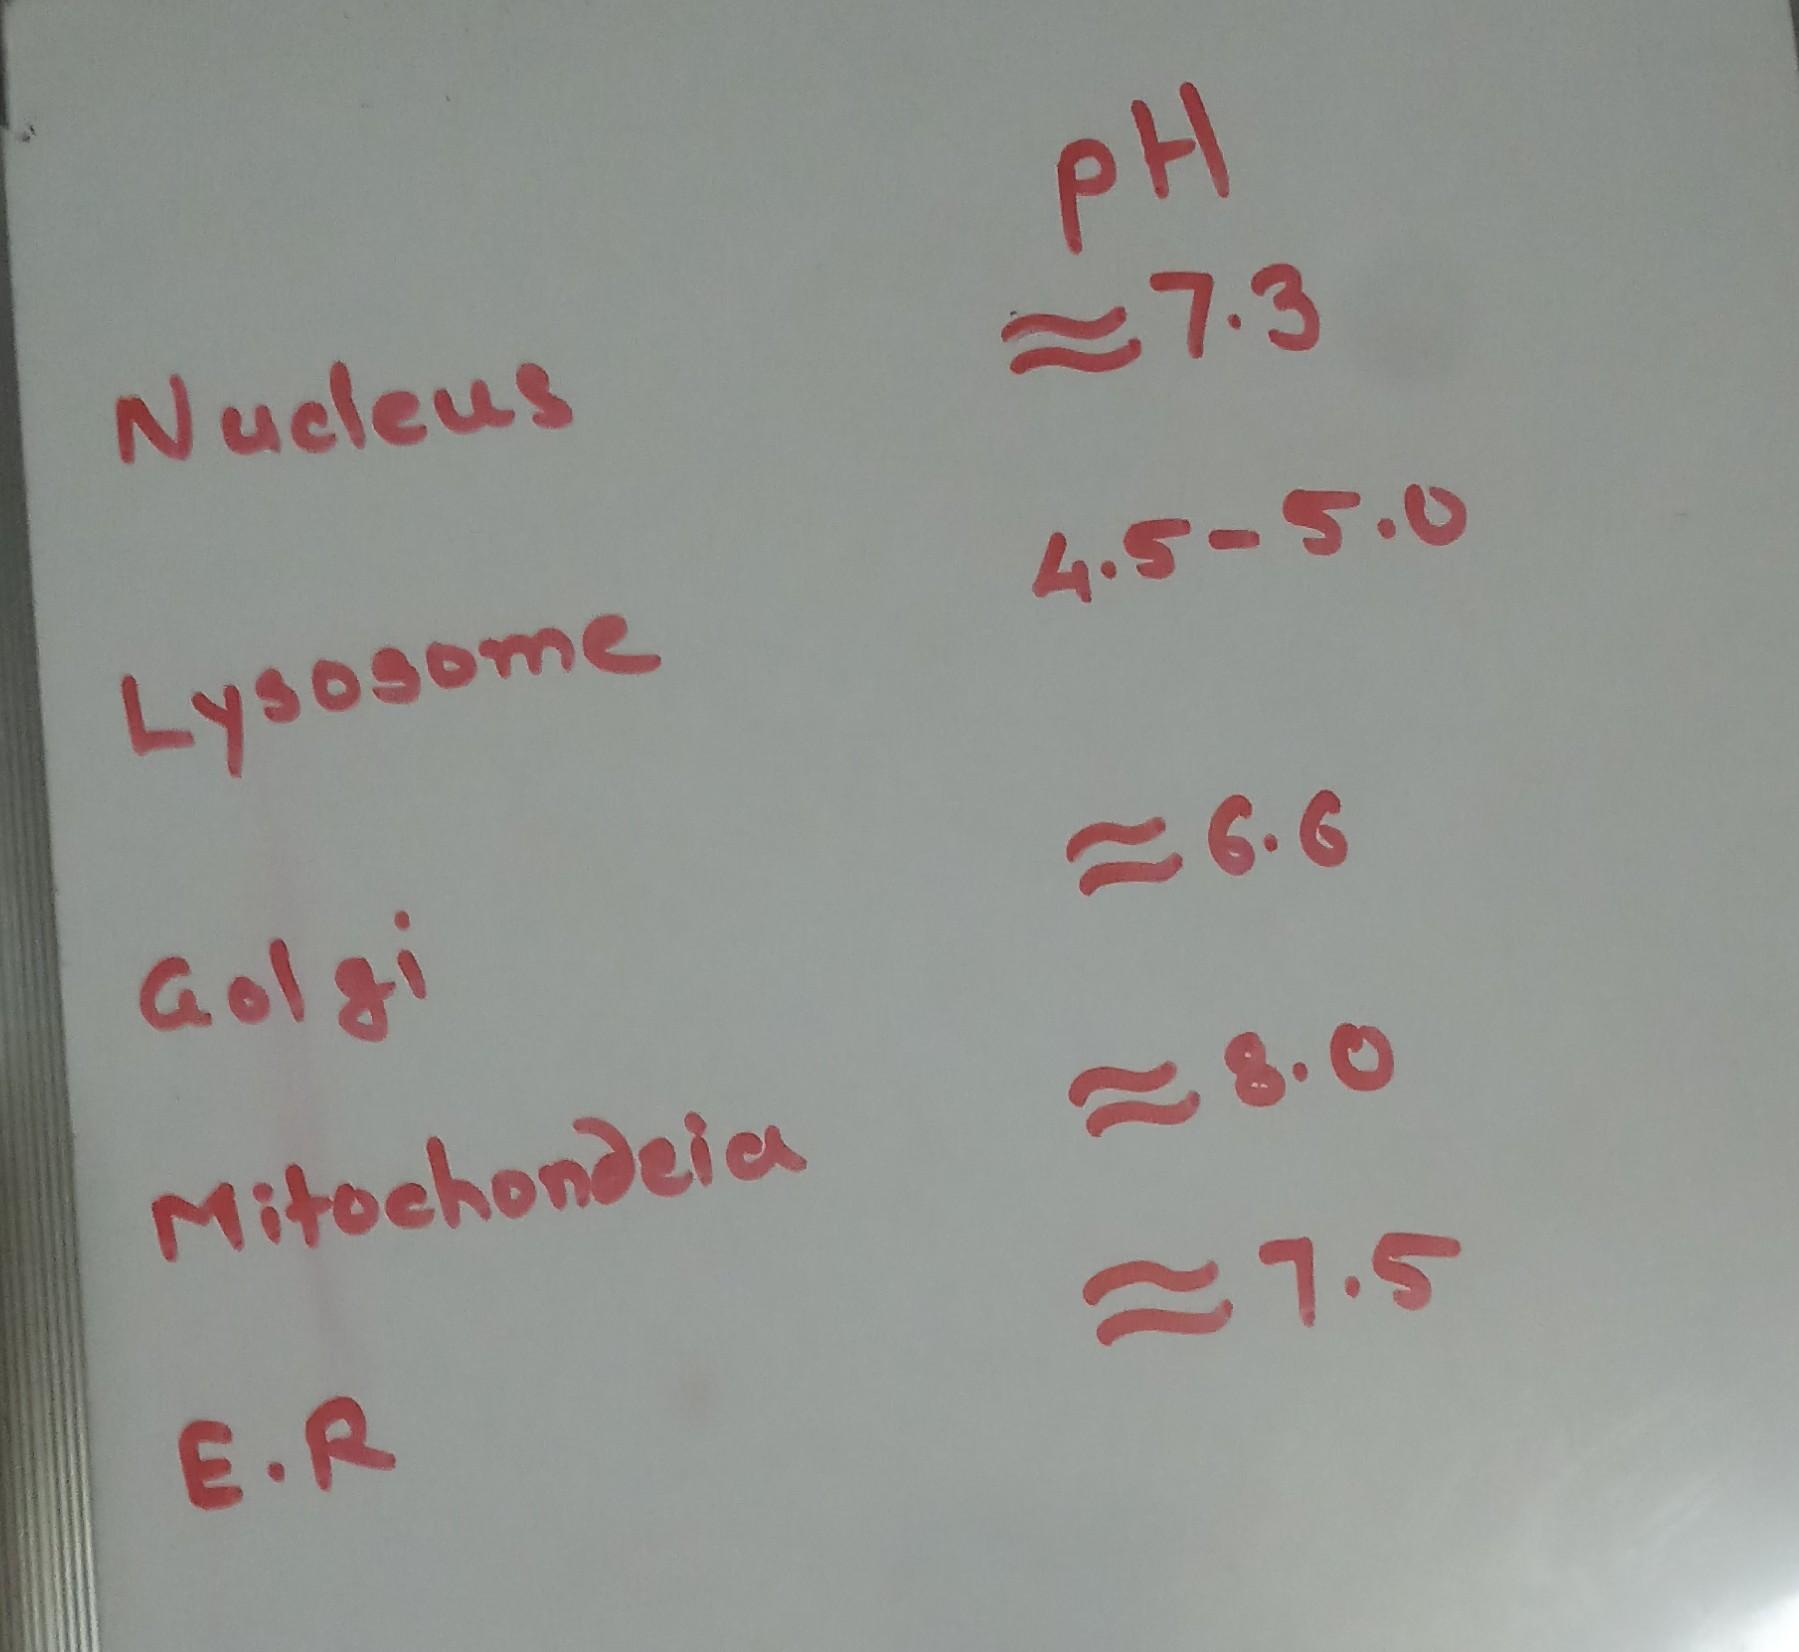 pH
Nucleus ≈ 7.3
Lysosome 4.5 - 5.0
Golgi ≈ 6.6
Mitochondria ≈ 8.0
E.R ≈ 7.5